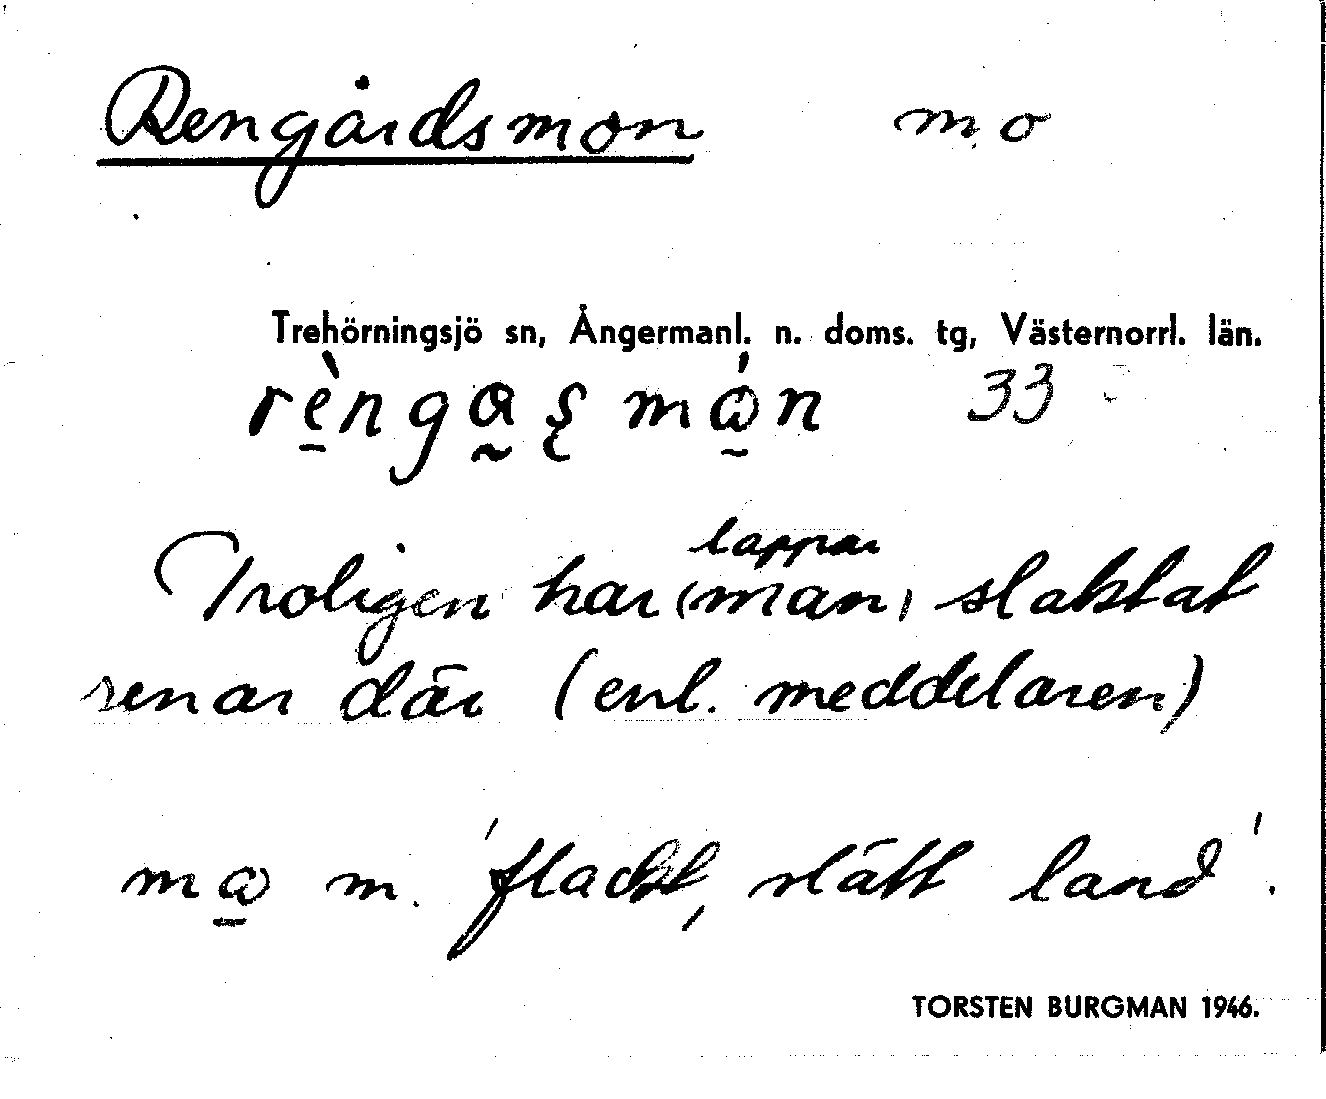 Rengårdsmon mo
Trehörningsjö sn, Ångermanl. n. doms. tg, Västernorrl. län.
rèngaşmón 33
lappar
Troligen har (man) slaktat
renar där (enl. meddelaren)
mω m. 'flackt, slätt land'.
TORSTEN BURGMAN 1946.